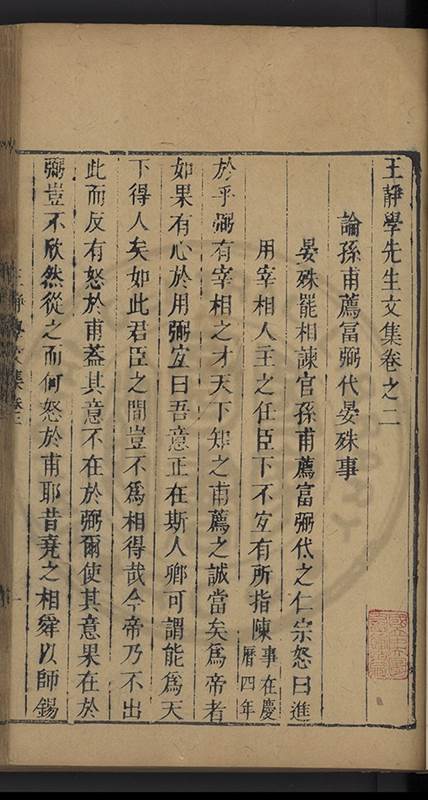 王靜學先生文集卷之二
論孫甫薦富弼代晏殊事
晏殊罷相諫官孫甫薦富弼代之仁宗怒曰進
用宰相人主之任臣下不宜有所指陳事在慶曆四年
於乎弼有宰相之才天下知之甫薦之誠當矣爲帝者
如果有心於用弼宜曰吾意正在斯人卿可謂能爲天
下得人矣如此君臣之間豈不爲相得哉今帝乃不出
此而反有怒於甫葢其意不在於弼爾使其意果在於
弼豈不欣然從之而何怒於甫耶昔堯之相舜以師錫